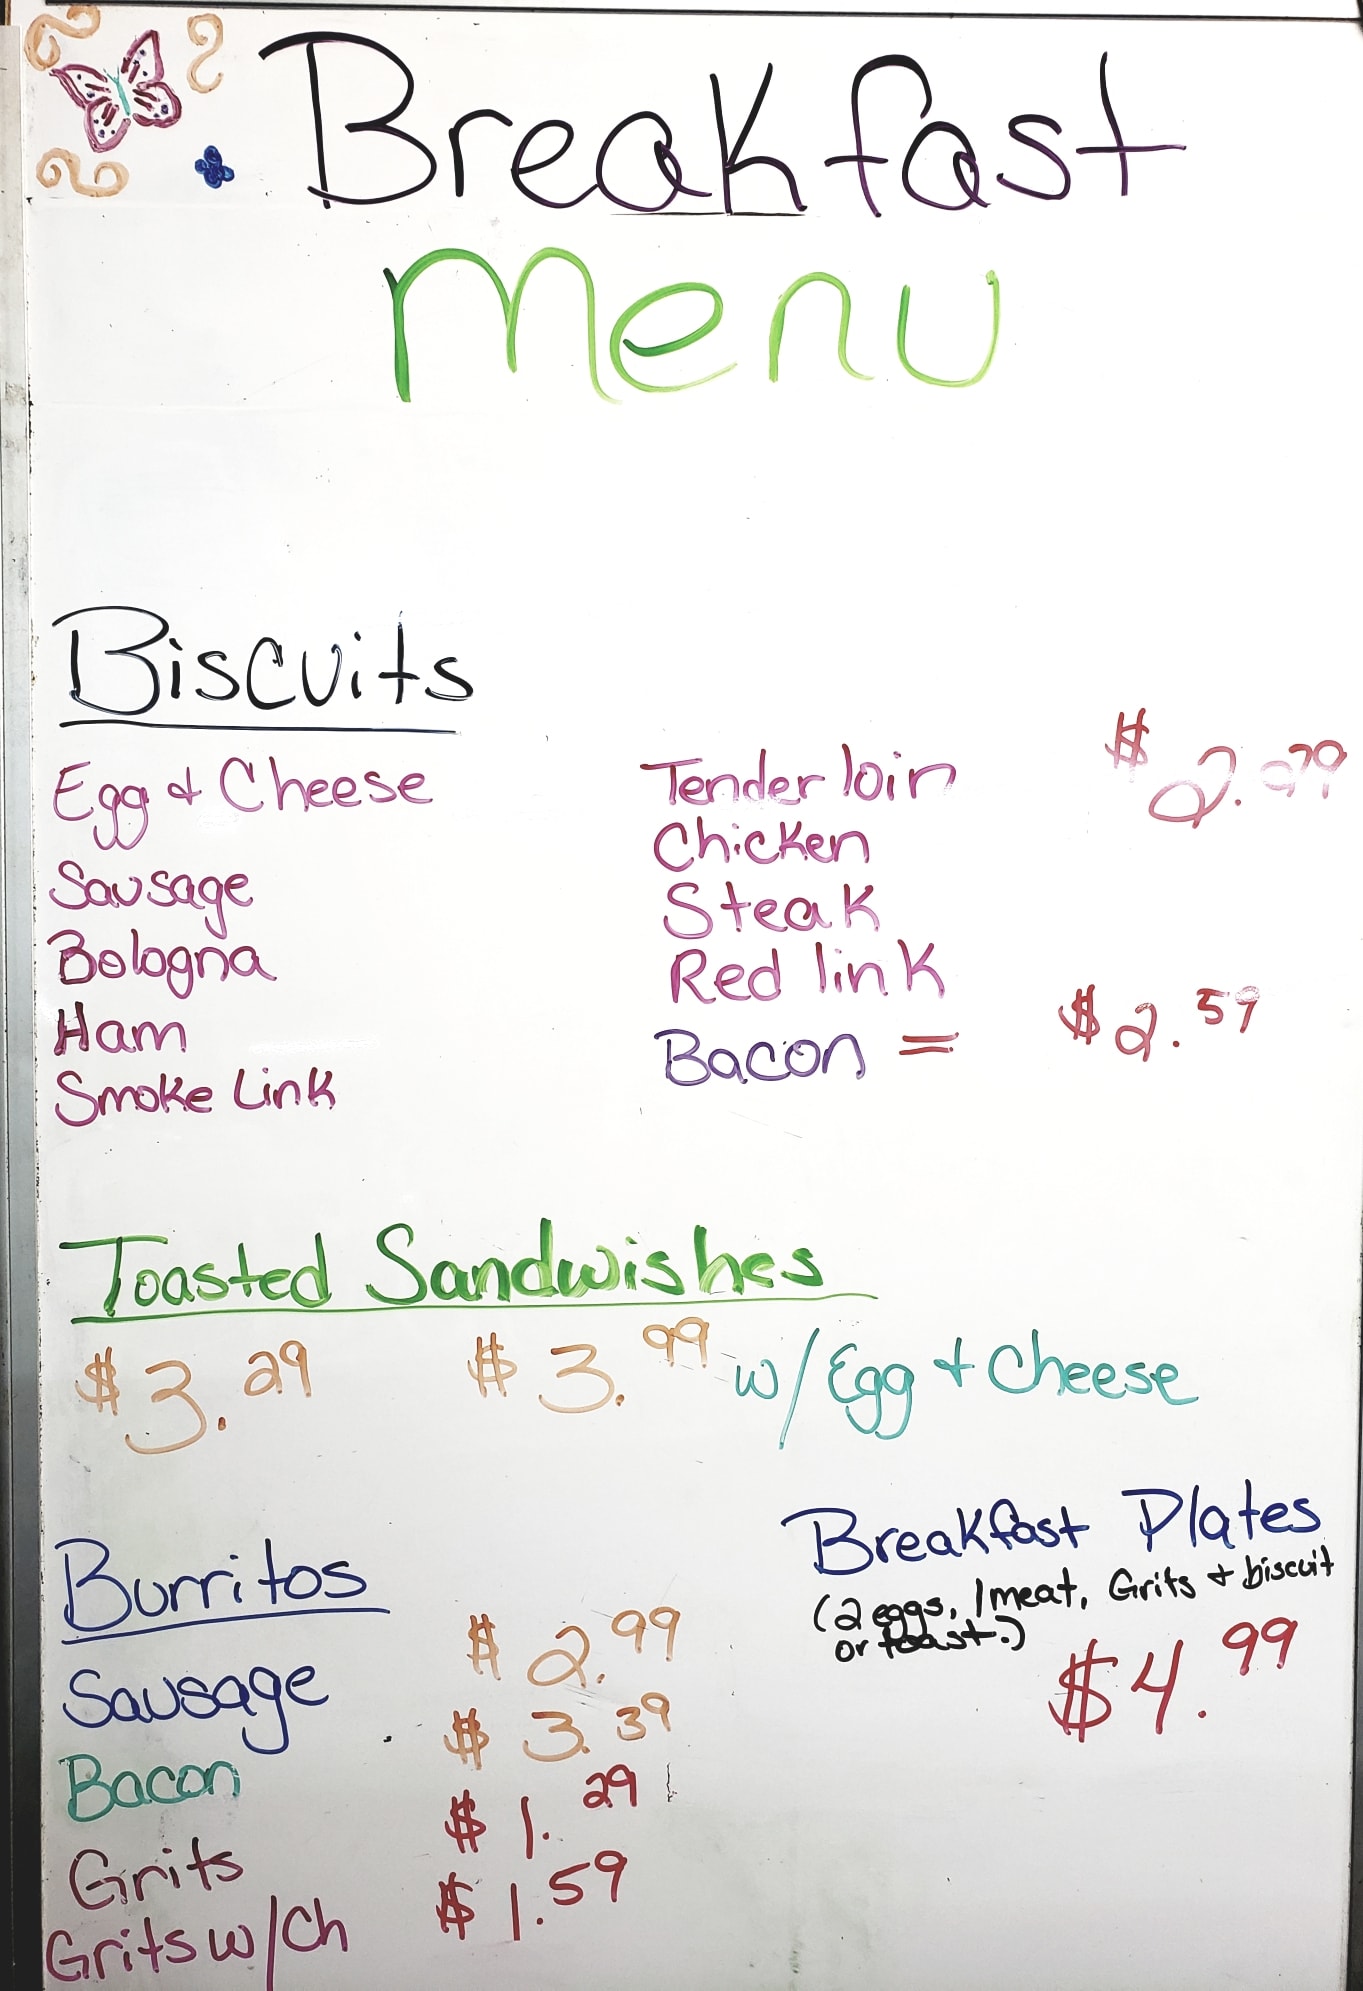 Breakfast
Menu
Biscuits
Egg & Cheese
Sausage
Bologna
Ham
Smoke Link
Tenderloin
Chicken
Steak
Red link
Bacon = $2.59
Toasted Sandwishes
$3.29 $3.99 w/Egg & Cheese
Burritos
Sausage $2.99
Bacon $3.39
Grits $1.29
Grits w/Ch $1.59
Breakfast Plates
(2 eggs, 1 meat, Grits & biscuit
or toast.)
$4.99